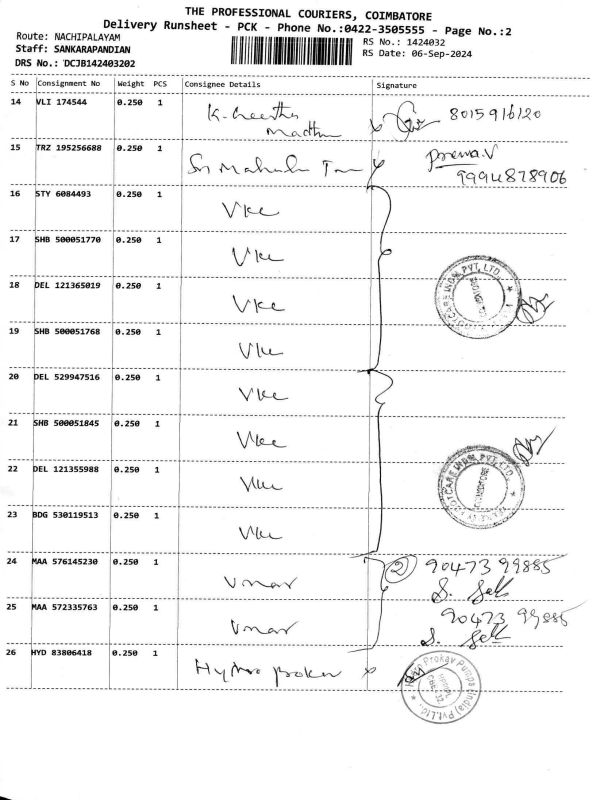 THE PROFESSIONAL COURIERS, COIMBATORE
Delivery Runsheet - PCK - Phone No.:0422-3505555 - Page No.:2
Route: NACHIPALAYAM
RS No.: 1424032
Staff: SANKARAPANDIAN
RS Date: 06-Sep-2024
DRS No.: DCJB142403202
S No Consignment No Weight PCS Consignee Details Signature
14 VLI 174544 0.250 1 K. Madhu 8015916120
15 TRZ 195256688 0.250 1 Sri Prema.V
9994878906
16 STY 6084493 0.250 1 Vkc
17 SHB 500051770 0.250 1 Vkc
18 DEL 121365019 0.250 1 Vkc
19 SHB 500051768 0.250 1 Vkc
20 DEL 529947516 0.250 1 Vkc
21 SHB 500051845 0.250 1 Vkc
22 DEL 121355988 0.250 1 Vkc
23 BDG 530119513 0.250 1 Vkc
24 MAA 576145230 0.250 1 Vmar 2 90473 99885
25 MAA 572335763 0.250 1 Vmar 90473 99885
26 HYD 83806418 0.250 1 Hydro Prokav
Prokav Pumps (India) Pvt. Ltd.,